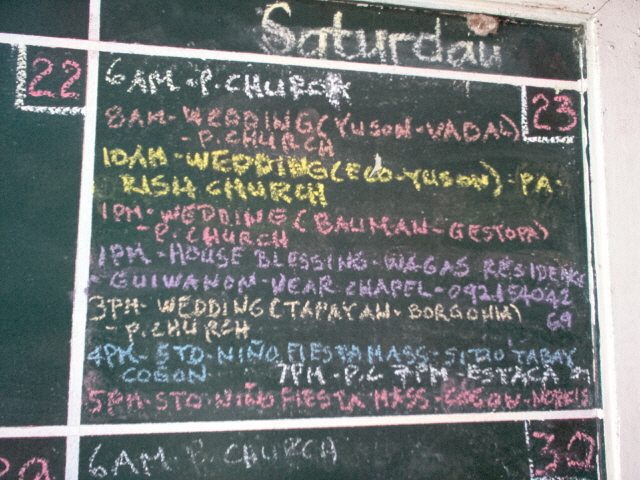 Saturday
22
6 AM - P. CHURCH
23
8AM - WEDDING (YUSON - VADAL)
- P. CHURCH
10AM - WEDDING (ECO - YUSON) - PA-
RISH CHURCH
1PM - WEDDING (BAUMAN - GESTOPA)
- P. CHURCH
1PM - HOUSE BLESSING - WAGAS RESIDENCE
- GUIWANON NEAR CHAPEL -
69
3PM - WEDDING (TAPAYAN - BORGONIA)
- P. CHURCH
4PM - STO. NIÑO FIESTA MASS - SITIO TABAY
COGON 7PM - P.C 7PM - ESTACA
5PM - STO NIÑO FIESTA MASS - COGON -
30
6AM - P. CHURCH